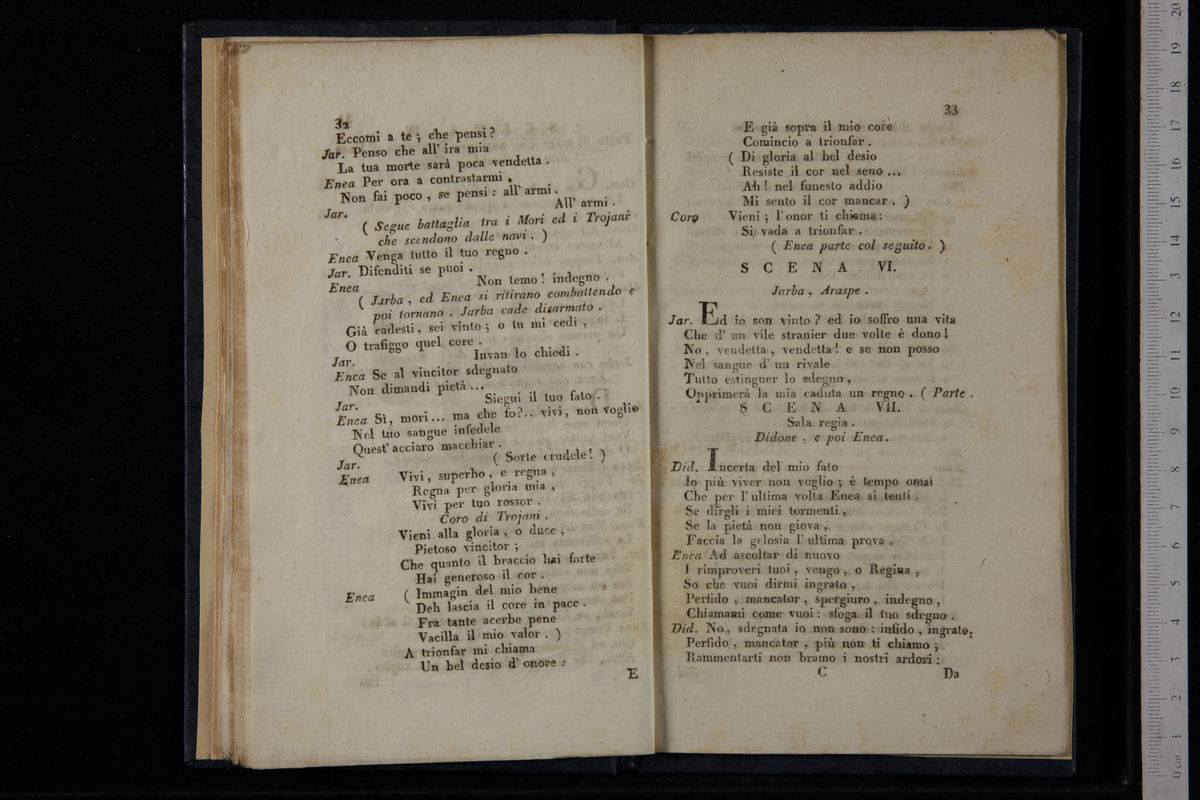 32
Eccomi a te ; che pensi ?
Jar. Penso che all' ira mia
La tua morte sarà poca vendetta .
Enea Per ora a contrastarmi ,
Non fai poco , se pensi : all' armi .
Jar. All' armi .
( Segue battaglia tra i Mori ed i Trojani
che scendono dalle navi . )
Enea Venga tutto il tuo regno .
Jar. Difenditi se puoi .
Enea Non temo ! indegno .
( Jarba , ed Enea si ritirano combattendo e
poi tornano . Jarba cade disarmato .
Già cadesti , sei vinto ; o tu mi cedi ,
O trafiggo quel core .
Jar. Invan lo chiedi .
Enea Se al vincitor sdegnato
Non dimandi pietà ...
Jar. Siegui il tuo fato .
Enea Sì , mori ... ma che fo ? .. vivi , non voglio
Nel tuo sangue infedele
Quest' acciaro macchiar .
Jar. ( Sorte crudele ! )
Enea Vivi , superbo , e regna ,
Regna per gloria mia ,
Vivi per tuo rossor .
Coro di Trojani .
Vieni alla gloria , o duce ,
Pietoso vincitor ;
Che quanto il braccio hai forte
Hai generoso il cor .
Enea ( Immagin del mio bene
Deh lascia il core in pace .
Fra tante acerbe pene
Vacilla il mio valor . )
A trionfar mi chiama
Un bel desio d' onore :
E
33
E già sopra il mio core
Comincio a trionfar .
( Di gloria al bel desio
Resiste il cor nel seno ...
Ah ! nel funesto addio
Mi sento il cor mancar . )
Coro Vieni ; l'onor ti chiama :
Si vada a trionfar .
( Enea parte col seguito . )
SCENA VI.
Jarba , Araspe .
Jar. Ed io son vinto ? ed io soffro una vita
Che d' un vile stranier due volte è dono !
No , vendetta , vendetta ! e se non posso
Nel sangue d' un rivale
Tutto estinguer lo sdegno ,
Opprimerà la mia caduta un regno . ( Parte .
SCENA VII.
Sala regia .
Didone , e poi Enea .
Did. Incerta del mio fato
Io più viver non voglio ; è tempo omai
Che per l' ultima volta Enea si tenti .
Se dirgli i miei tormenti ,
Se la pietà non giova ,
Faccia la gelosia l' ultima prova .
Enea Ad ascoltar di nuovo
I rimproveri tuoi , vengo , o Regina ,
So che vuoi dirmi ingrato ,
Perfido , mancator , spergiuro , indegno ,
Chiamami come vuoi : sfoga il tuo sdegno .
Did. No , sdegnata io non sono : infido , ingrato,
Perfido , mancator , più non ti chiamo ;
Rammentarti non bramo i nostri ardori :
C Da
0 cm 1 2 3 4 5 6 7 8 9 10 11 12 13 14 15 16 17 18 19 20